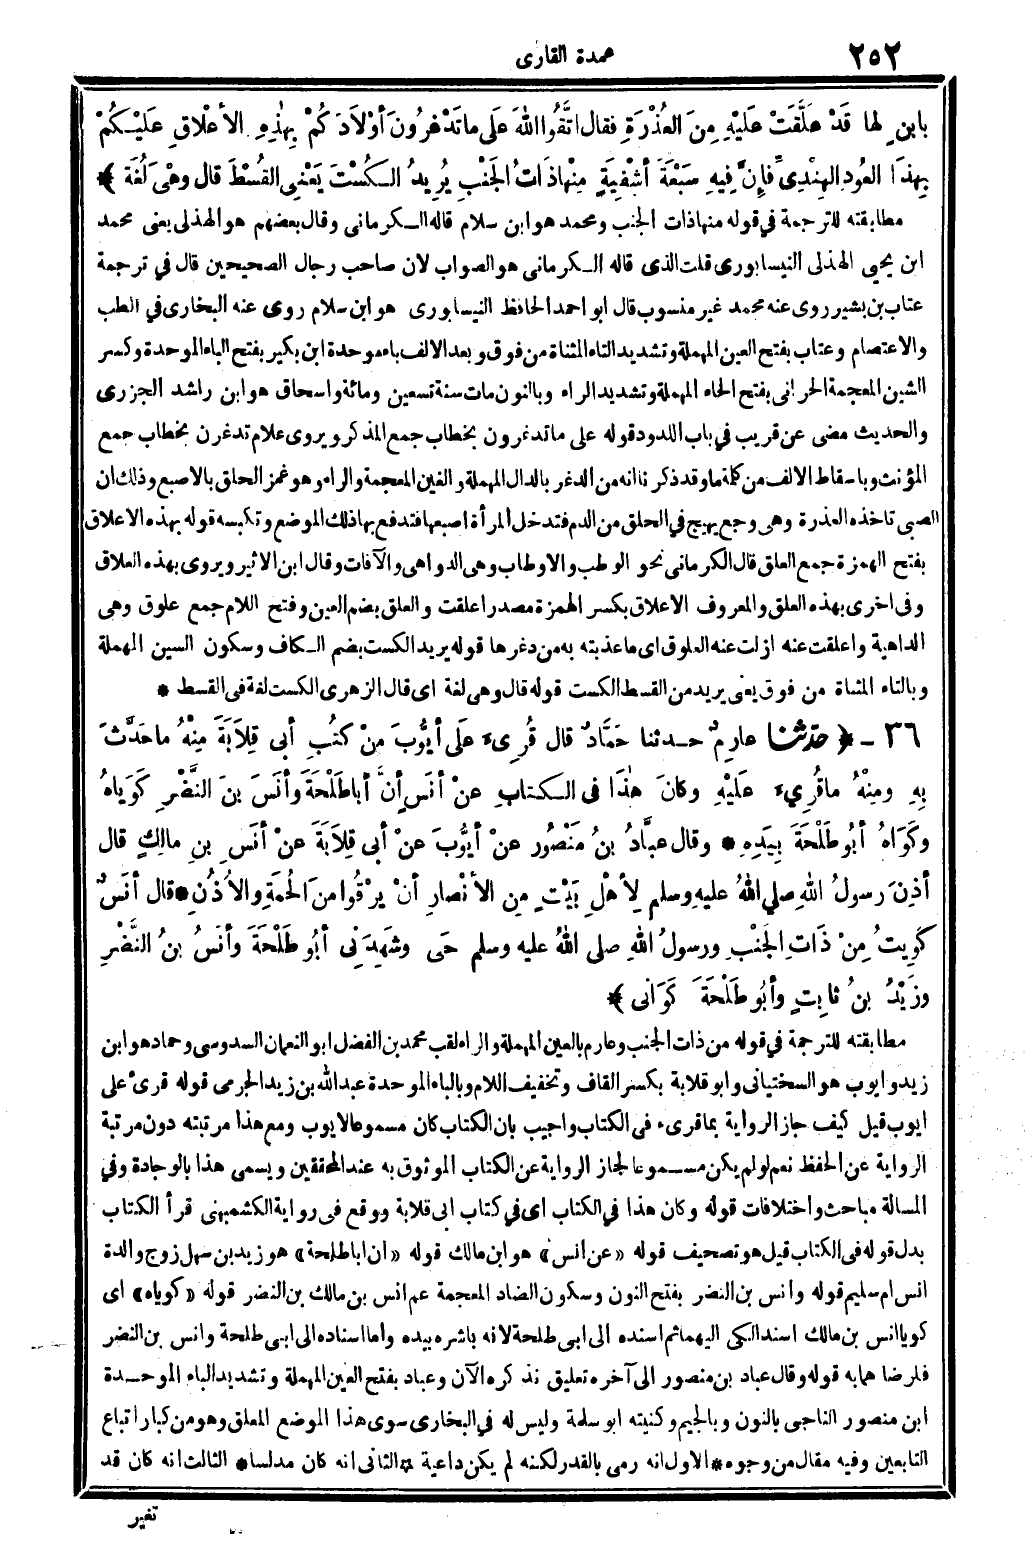 ٢٥٢ عمدة القارى
بابن لها قَدْ عَلَّقَتْ عَلَيْهِ مِنَ العُذْرَةِ فقال اتَّقُوا اللهَ عَلَى ما تَدْغَرُونَ أوْلَادَكُمْ بِهٰذِهِ الأَعْلَاقِ عَلَيْكُمْ
بِهٰذَا العُودِ الهِنْدِىِّ فإِنَّ فِيهِ سَبْعَةَ أشْفِيَةٍ مِنْهَا ذَاتُ الجَنْبِ يُرِيدُ الكُسْتَ يَعْنِى القُسْطَ قال وهْىَ لُغَةٌ ﴾
مطابقته للترجمة في قوله منها ذات الجنب ومحمد هو ابن سلام قاله الكرمانى وقال بعضهم هو الهذلى يعنى محمد
ابن يحيى الهذلى النيسابورى قلت الذى قاله الكرمانى هو الصواب لان صاحب رجال الصحيحين قال في ترجمة
عتاب بن بشير روى عنه محمد غير منسوب قال ابو احمد الحافظ النيسابورى هو ابن سلام روى عنه البخارى في الطب
والاعتصام وعتاب بفتح العين المهملة وتشديد التاء المثناة من فوق وبعد الالف باء موحدة ابن بكير بفتح الباء الموحدة وكسر
الشين المعجمة الحرانى بفتح الحاء المهملة وتشديد الراء وبالنون مات سنة تسعين ومائة واسحاق هو ابن راشد الجزرى
والحديث مضى عن قريب في باب اللدود قوله على ما تدغرون بخطاب جمع المذكر ويروى علام تدغرن بخطاب جمع
المؤنث وباسقاط الالف من كلمة ما وقد ذكرنا انه من الدغر بالدال المهملة والغين المعجمة والراء وهو غمز الحلق بالاصبع وذلك ان
الصبى تاخذه العذرة وهى وجع يهيج في الحلق من الدم فتدخل المرأة اصبعها فتدفع بها ذلك الموضع وتكبسه قوله بهذه الاعلاق
بفتح الهمزة جمع العلق قال الكرمانى نحو الوطب والاوطاب وهى الدواهى والآفات وقال ابن الاثير ويروى بهذه العلاق
وفى اخرى بهذه العلق والمعروف الاعلاق بكسر الهمزة مصدر اعلقت والعلق بضم العين وفتح اللام جمع علوق وهى
الداهية واعلقت عنه ازلت عنه العلوق اى ما عذبته به من دغرها قوله يريد الكست بضم الكاف وسكون السين المهملة
وبالتاء المثناة من فوق يعنى يريد من القسط الكست قوله قال وهى لغة اى قال الزهرى الكست لغة فى القسط *
٣٦ - ﴿ حَدَّثَنَا عارِمٌ حدثنا حَمَّادٌ قال قُرِىءَ عَلَى أيُّوبَ مِنْ كُتُبِ أبى قِلَابَةَ مِنْهُ ما حَدَّثَ
بِهِ ومِنْهُ ما قُرِىءَ عَلَيْهِ وكانَ هٰذَا فى الكِتابِ عنْ أنَسٍ أنَّ أبا طَلْحَةَ وأنَسَ بنَ النَّضْرِ كَوَيَاهُ
وكَوَاهُ أبُو طَلْحَةَ بِيَدِهِ * وقال عبَّادُ بنُ مَنْصُورٍ عنْ أيُّوبَ عنْ أبى قِلَابَةَ عنْ أنَسِ بنِ مالِكٍ قال
أذِنَ رسولُ اللهِ صلى اللهُ عليهِ وسلم لِأهْلِ بَيْتٍ مِنِ الأنْصارِ أنْ يَرْقُوا مِنَ الحُمَةِ والأُذُنِ * قال أنَسٌ
كُوِيتُ مِنْ ذَاتِ الجَنْبِ ورسولُ اللهِ صلى اللهُ عليه وسلم حَىٌّ وشَهِدَنِى أبُو طَلْحَةَ وأنَسُ بنُ النَّضْرِ
وزَيْدُ بنُ ثابِتٍ وأبُو طَلْحَةَ كَوَانِى ﴾
مطابقته للترجمة في قوله من ذات الجنب وعارم بالعين المهملة والراء لقب محمد بن الفضل ابو النعمان السدوسى وحماد هو ابن
زيد وايوب هو السختيانى وابو قلابة بكسر القاف وتخفيف اللام وبالباء الموحدة عبد الله بن زيد الجرمى قوله قرئ على
ايوب قيل كيف جاز الرواية بما قرىء فى الكتاب واجيب بان الكتاب كان مسموعا لايوب ومع هذا مرتبته دون مرتبة
الرواية عن الحفظ نعم لو لم يكن مسموعا لجاز الرواية عن الكتاب الموثوق به عند المحققين ويسمى هذا بالوجادة وفي
المسالة مباحث واختلافات قوله وكان هذا في الكتاب اى في كتاب ابى قلابة ووقع فى رواية الكشميهنى قرأ الكتاب
بدل قوله فى الكتاب قيل هو تصحيف قوله «عن انس» هو ابن مالك قوله «ان ابا طلحة» هو زيد بن سهل زوج والدة
انس ام سليم قوله وانس بن النضر بفتح النون وسكون الضاد المعجمة عم انس بن مالك بن النضر قوله «كوياه» اى
كويا انس بن مالك اسند الكى اليهما ثم اسنده الى ابى طلحة لانه باشره بيده واما اسناده الى ابى طلحة وانس بن النضر
فلرضاهما به قوله وقال عباد بن منصور الى آخره تعليق نذكره الآن وعباد بفتح العين المهملة وتشديد الباء الموحدة
ابن منصور الناجى بالنون وبالجيم وكنيته ابو سلمة وليس له في البخارى سوى هذا الموضع المعلق وهو من كبار اتباع
التابعين وفيه مقال من وجوه * الاول انه رمى بالقدر لكنه لم يكن داعية * الثانى انه كان مدلسا * الثالث انه كان قد
تغير